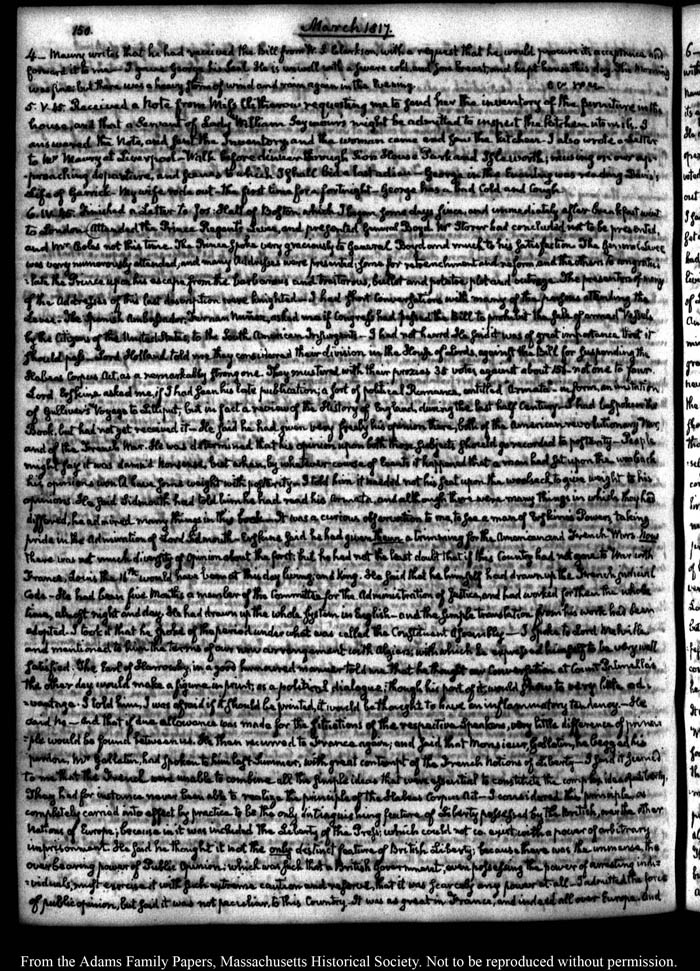 150.
March 1817.
4— Maury writes that he had received the bill from W. S. Clarkson with a request that he would procure its acceptance and
forward it to me— George is unwell with a severe cold and sore breast, and kept house this day. The Morning
was fine but there was a heavy storm of wind and rain again in the Evening.
5. V. 15. Received a Note from Miss Clitherow requesting me to send her the inventory of the furniture in this
house, and that a Servant of Lady William Seymour's might be admitted to inspect the kitchen utensils. I
answered the Note, and sent the Inventory and the woman came and saw the kitchen. I also wrote a letter
to Mr Maury at Liverpool— Walk before dinner through Sion House Park and Isleworth; musing on our ap-
-proaching departure, and scenes to which I shall bid a last adieu— George in the Evening was reading Davies's
Life of Garrick. My wife rode out— The first time for a fortnight— George has a bad Cold and Cough.
6. IV. 45. Finished a Letter to Jos: Hall of Boston which I began some days since; and immediately after breakfast went
to London. Attended the Prince Regent's Levee, and presented General Boyd. Mr Storer had concluded not to be presented,
and Mr Coles not this time. The Prince spoke very graciously to General Boyd and much to his satisfaction. The Levee
was very numerously attended, and many Addresses were presented; some for retrenchment and reform, and the others to congratu-
-late the Prince upon his escape from the barbarous and traitorous, bullet and potatoe, plot and outrage. The presenters of many
of the Addresses of this last description were knighted— I had short Conversations with many of the persons attending the
Levee. The Spanish Ambassador, Fernan Nuñez, asked me if Congress had passed the Bill to prohibit the sale of armed Vessels
by the Citizens of the United States, to the South American Insurgents— I had not heard. He said it was of great importance that it
should pass— Lord Holland told me they considered their division in the House of Lords, against the Bill for suspending the
Habeas Corpus Act, as a remarkably strong one. They mustered with their proxies 35 votes against about 150. not one to four.
Lord Erskine asked me if I had seen his late publication; a sort of political Romance, entitled Armata— in form, an imitation
of Gulliver's Voyage to Lilliput, but in fact a review of the History of England, during the last half Century— I had bespoken the
Book, but had not yet received it— He said he had given very freely his opinion there, both of the American revolutionary War,
and of the French War. He was determined that his opinion upon both those subjects should go recorded to posterity— People
might say it was damn'd Nonsense, but when, by whatever course of events it happened that a man had sat upon the woolsack
his opinions would have some weight with posterity— I told him it needed not his seat upon the woolsack to give weight to his
opinions. He said Sidmouth had told him he had read his Armata, and although there were many things in which they had
differed, he admired many things in this book— It was a curious observation to me, to see a man of Erskine's Powers, taking
pride in the Admiration of Lord Sidmouth— Erskine said he had given them a trimming for the American and French Wars. Now
there was not much diversity of Opinion about the first; but he had not the least doubt that if this Country had not gone to War with
France, Louis the 16th would have been at this day living, and King. He said that he himself had drawn up the French judicial
Code— He had been five Months a member of the Committee for the Administration of Justice, and had worked for them the whole
time, almost night and day. He had drawn up the whole system in English— and the simple translation from his work had been
adopted— I took it that he spoke of the period under what was called the Constituent Assembly— I spoke to Lord Melville
and mentioned to him the terms of our new arrangement with Algiers; with which he expressed himself to be very well
satisfied. The Earl of Harrowby, in a good humoured manner told me that he thought our Conversation at Count Palmella's
the other day would make a figure in print, as a political dialogue; though his part of it would show to very little ad-
-vantage. I told him, I was afraid if it should be printed, it would be thought to have an inflammatory tendency.— He
said no— and that if due allowance was made for the situations of the respective Speakers, very little difference of princi-
-ple would be found between us. He then recurred to France again; and said that Monsieur Gallatin, he begged his
pardon, Mr Gallatin, had spoken to him last Summer, with great contempt of the French Notions of Liberty— I said it seemed
to me that the French were unable to combine all the simple ideas that were essential to constitute the complex idea of Liberty.
They had for instance never been able to realize the principle of the Habeas Corpus Act— I considered this principle as
completely carried into effect by practice to be the only distinguishing feature of Liberty possessed by the British, over the other
Nations of Europe; because in it was included the Liberty of the Press; which could not co-exist with a power of arbitrary
imprisonment. He said he thought it not the only distinct feature of British Liberty; because there was the immense, the
overbearing power of Public Opinion; which was such that a British Government, even possessing the power of arresting indi-
-viduals, must exercise it with such extreme caution and reserve, that it was scarcely any power at all.— I admitted the force
of public opinion, but said it was not peculiar to this Country. It was as great in France, and indeed all over Europe. And
From the Adams Family Papers, Massachusetts Historical Society. Not to be reproduced without permission.